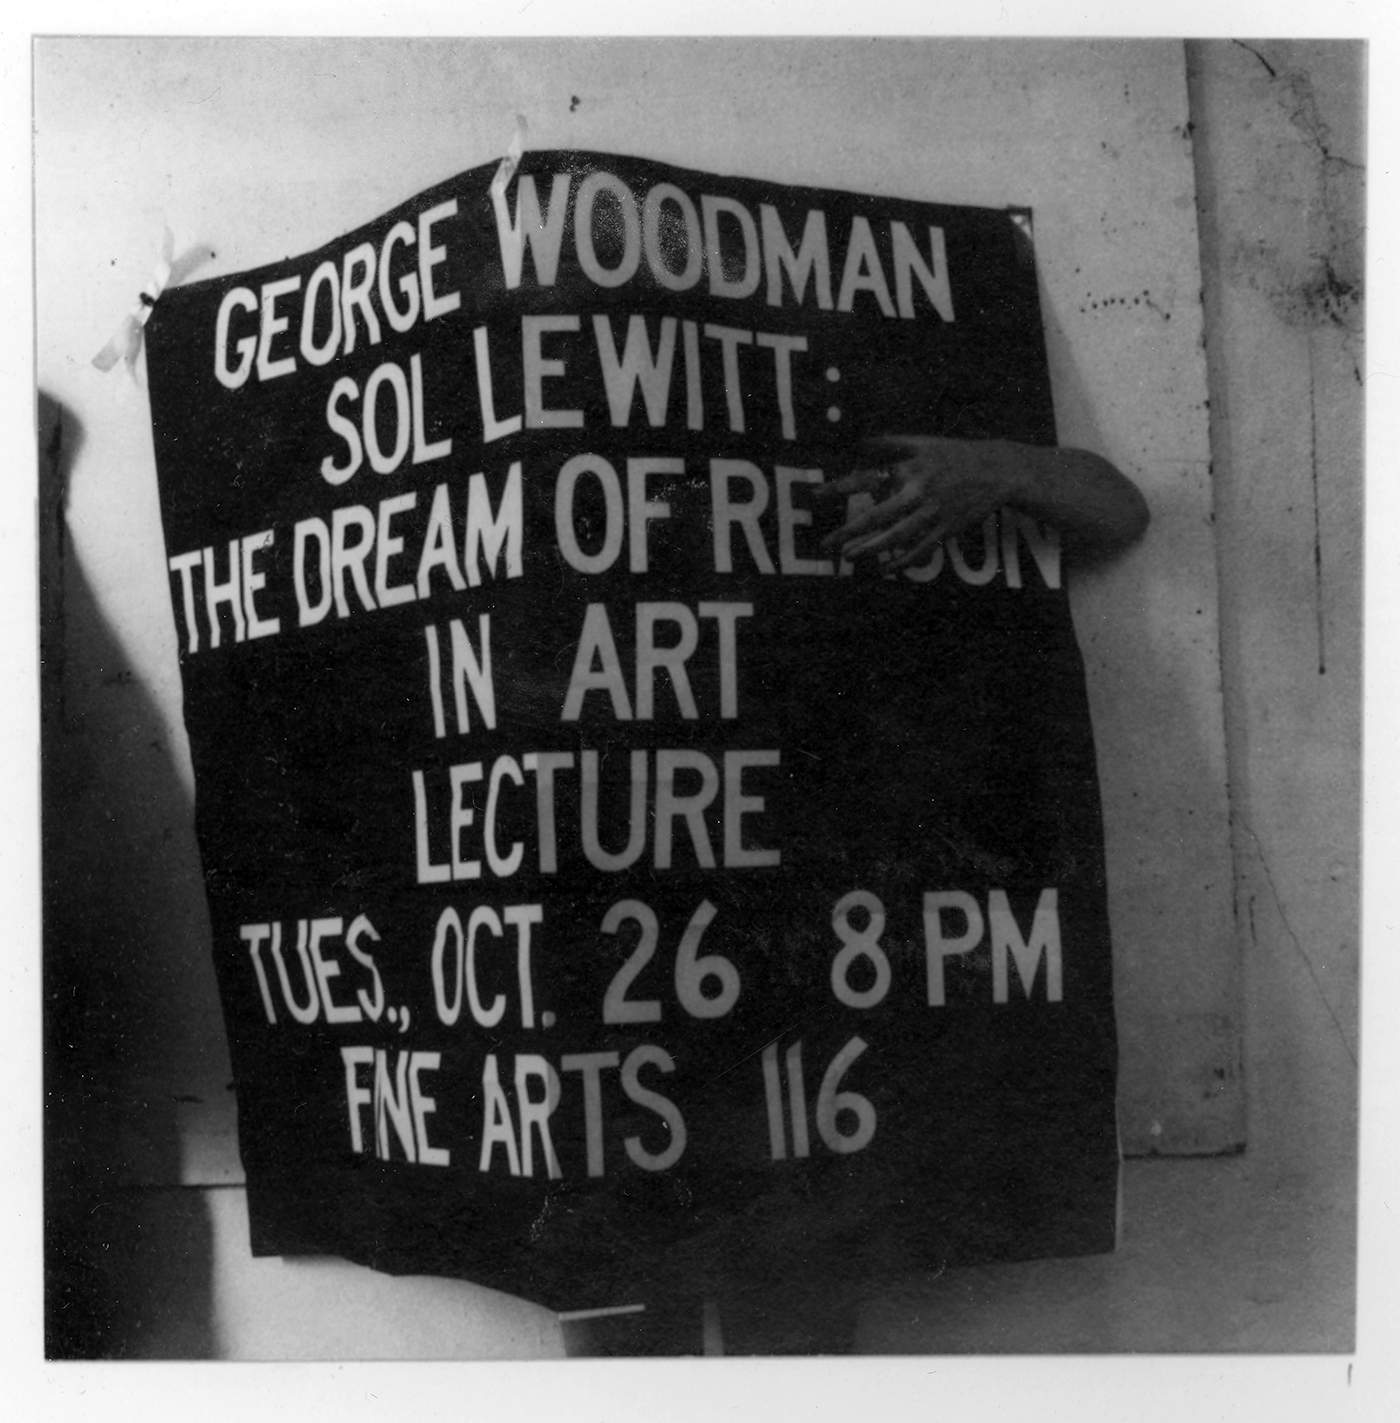 GEORGE WOODMAN
SOL LEWITT:
THE DREAM OF REASON
IN ART
LECTURE
TUES., OCT. 26 8 PM
FINE ARTS 116